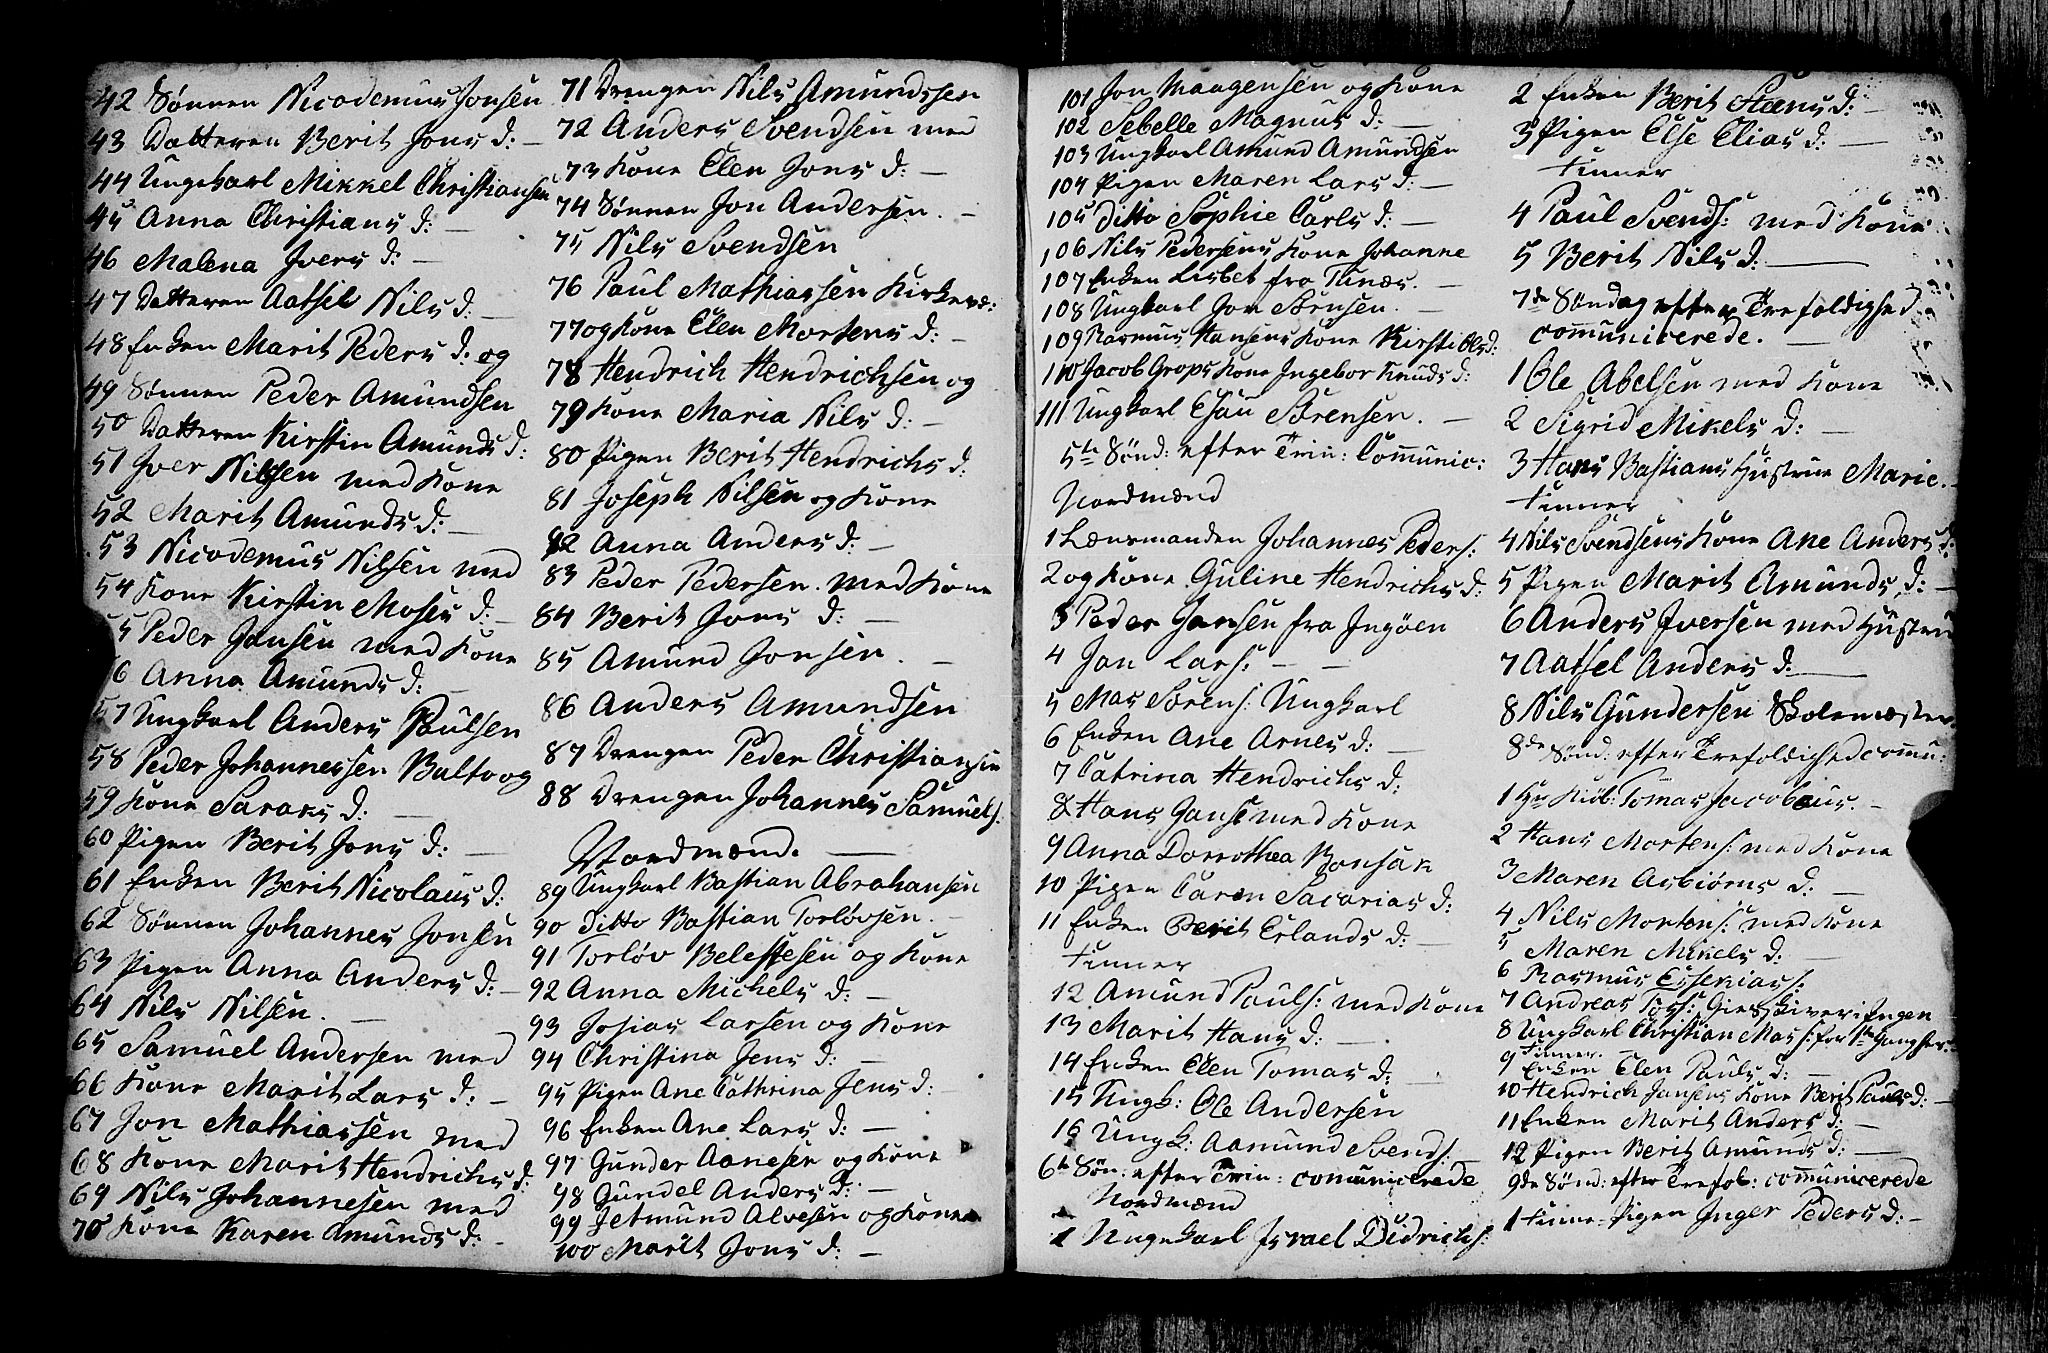 42 Sønnen Nicodemus Jonsen
43 Datteren Berit Jons d: —
44 Ungekarl Mikkel Christiansen
45 Anna Christians d: —
46 Malena Ivers d: —
47 Datteren Aatsel Nils d: —
48 Enken Marit Peders d: og
49 Sønnen Peder Amundsen
50 Datteren Kirstin Amunds d:
51 Iver Nilsen med Kone
52 Marit Amunds d: —
53 Nicodemus Nilsen med
54 Kone Kirstin Moses d: —
55 Peder Jansen med Kone
56 Anna Amunds d: —
57 Ungkarl Anders Paulsen
58 Peder Johannessen Balto og
59 Kone Saraks d: —
60 Pigen Berit Jons d: —
61 Enken Berit Nicolaus d:
62 Sønnen Johannes Jonsen
63 Pigen Anna Anders d: —
64 Nils Nilsen. —
65 Samuel Andersen med
66 Kone Marit Lars d: —
67 Jon Mathiassen med
68 Kone Marit Hendrichs d:
69 Nils Johannesen med
70 Kone Karen Amunds d: -
71 Drengen Nils Amundssen
72 Anders Svendsen med
73 Kone Elen Jons d: —
74 Sønnen Jon Andersen. —
75 Nils Svendsen
76 Paul Mathiassen Kirkevæ:
77 og Kone Elen Mortens d: —
78 Hendrich Hendrichsen og
79 Kone Maria Nils d: —
80 Pigen Berit Hendrichs d:
81 Joseph Nilsen og Kone
82 Anna Anders d: —
83 Peder Pedersen med Kone
84 Berit Jons d: —
85 Amund Jonsen. —
86 Anders Amundsen
87 Drengen Peder Christiansen
88 Drengen Johannes Samuels.
Nordmænd. —
89 Ungkarl Bastian Abrahansen
90 Ditto Bastian Torløvsen. —
91 Torløv Belessesen og Kone
92 Anna Michels d: —
93 Josias Larsen og Kone
94 Christina Jens d: —
95 Pigen Ane Cathrina Jens d: —
96 Enken Ane Lars d: —
97 Gunder Aanesen og Kone
98 Gundel Anders d: —
99 Jetmund Alvesen og Kone
100 Marit Jons d: —
101 Jon Maagensen og Kone
102 Sebelle Magnus d: —
103 Ungkarl Amund Amundsen
104 Pigen Maren Lars d: —
105 Ditto Sophie Carls d: —
106 Nils Pedersens Kone Johanne
107 Enken Lisbet fra Tunæs. —
108 Ungkarl Jon Sørnsen. —
109 Rasmus Hansens Kone Kirsti Ols d:
110 Jacob Grops Kone Ingebor Knuds d:
111 Ungkarl Esau Sørensen. —
5te Sønd: efter Trin: Communic:
Nordmænd
1 Lænsmanden Johannes Peders:
2 og Kone Guline Hendrichs d:
3 Peder Jansen fra Ingøen
4 Jan Lars: — —
5 Mas Sørens: Ungkarl
6 Enken Ane Arnes d: —
7 Catrina Hendrichs d:
8 Hans Jans: med Kone
9 Anna Dorrothea Bonsak
10 Pigen Caren Sacarias d:
11 Enken Berit Erlands d: —
Finner
12 Amund Pauls: med Kone
13 Marit Hans d: —
14 Enken Elen Tomas d: —
15 Ungk: Ole Andersen
16 Ungk: Aamund Svends: —
6te Søn: efter Trin: comunicerede
Nordmænd
1 Ungekarl Israel Didrichs:
2 Enken Berit Steens d: —
3 Pigen Else Elias d: —
Finner
4 Paul Svends: med Kone
5 Berit Nils d: —
7de Søndag efter Trefoldighed
comunicerede. —
1 Ole Abelsen med Kone
2 Sigrid Mikels d: —
3 Hans Bastians Hustrue Marie. —
Finner
4 Nils Svendsens Kone Ane Anders d:
5 Pigen Marit Amunds d: —
6 Anders Iversen med Hustru
7 Aatsel Anders d: —
8 Nils Gundersen Skolemæster
8de Sønd: efter Trefoldighed comu:
1 Hr Kiøb: Tomas Jacobæus. —
2 Hans Mortens: med Kone
3 Maren Asbiørns d: —
4 Nils Mortens: med Kone
5 Maren Mikels d: —
6 Rasmus Essekiass:
7 Andreas Toss: Gieskiver i Ingen
8 Ungkarl Christian Mass: for 1te Gang her.
Finner. —
9 Enken Elen Pauls d: —
10 Hendrich Jansens Kone Berit Pauls d: —
11 Enken Marit Anders d: —
12 Pigen Berit Amunds d: —
9de Sønd: efter Trefol: comunicerede
1 Finne-Pigen Inger Peders d: —